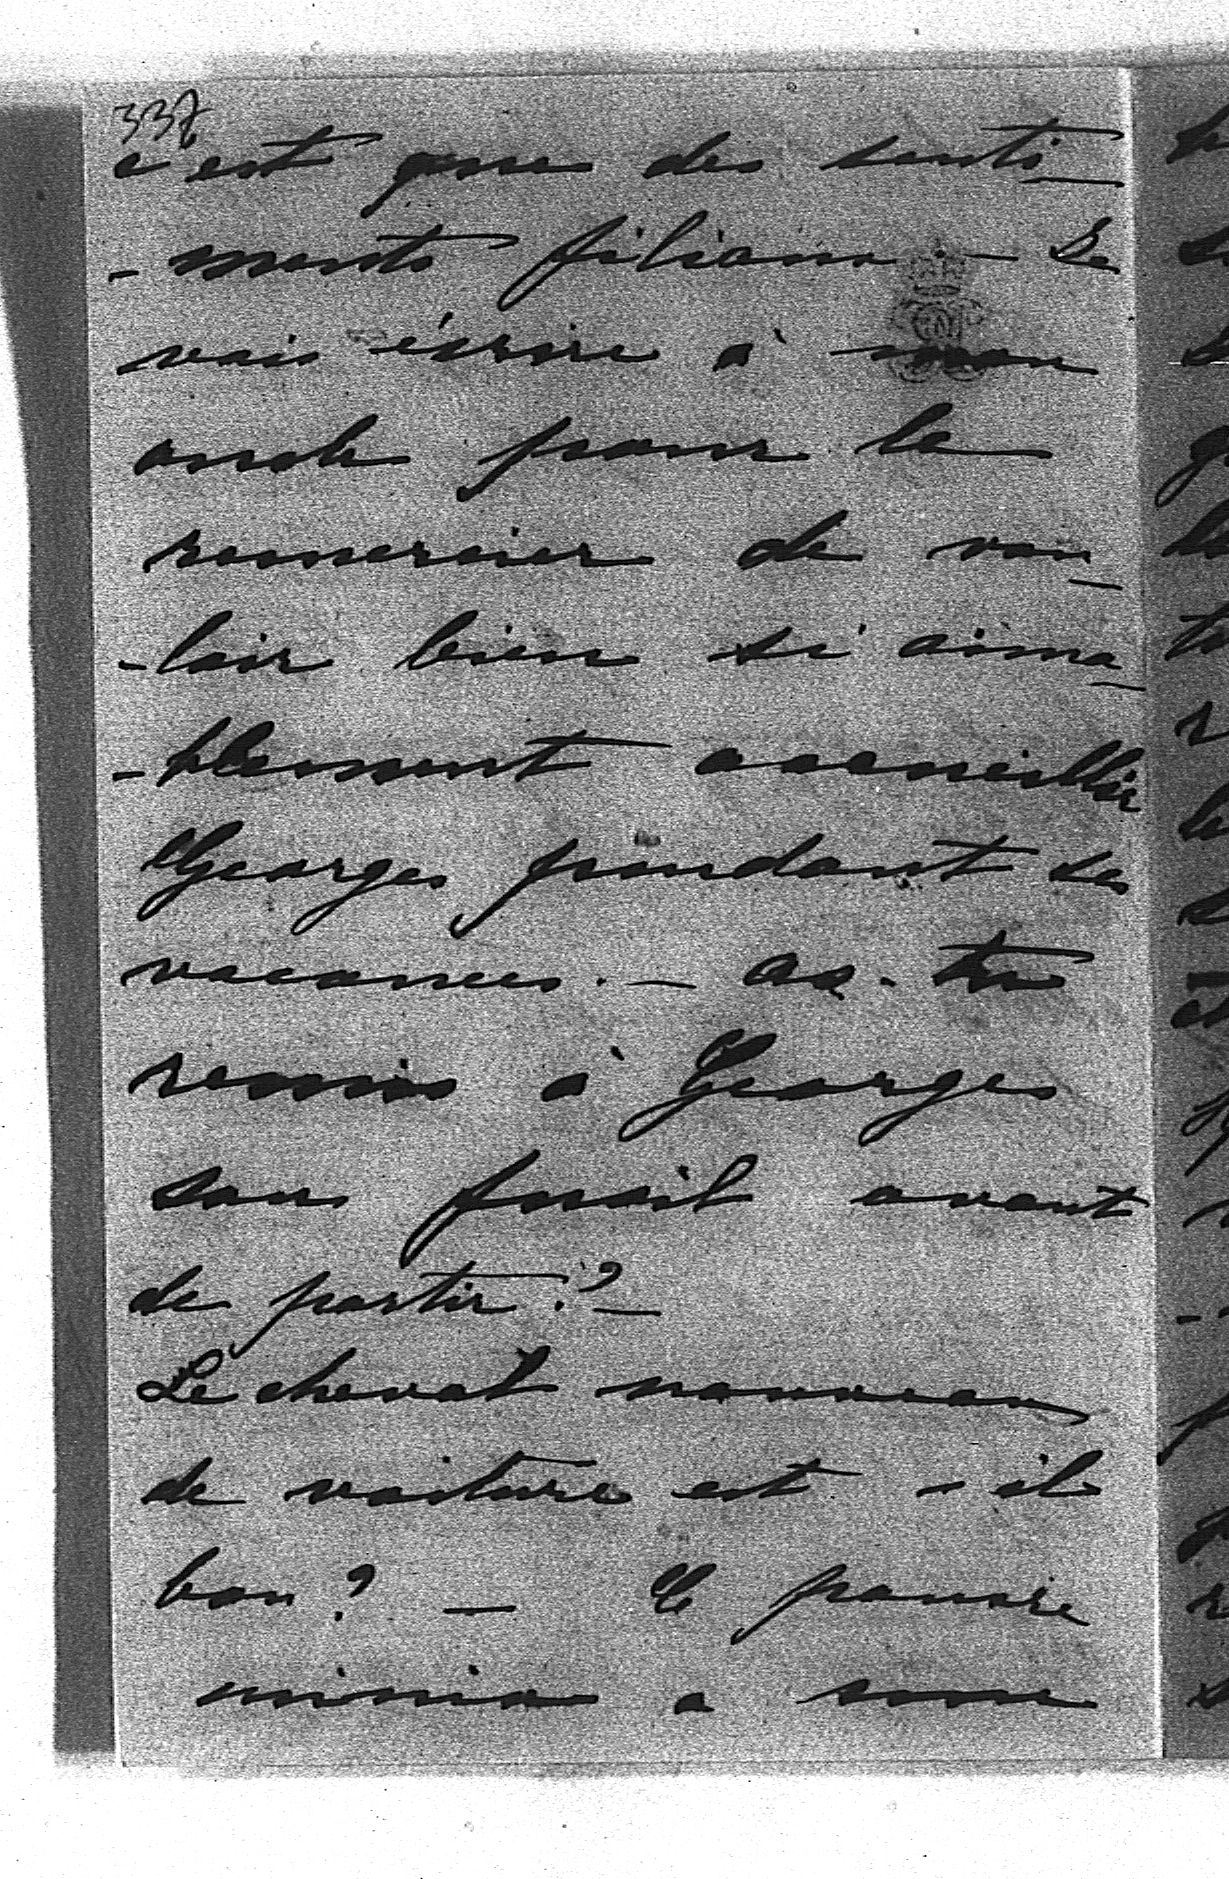 337
c'est que des senti-
-ments filiaux — Je
vais écrire à mon
oncle pour le
remercier de vou-
-loir bien si aima-
-blement accueillir
Georges pendant ses
vacances. — as-tu
remis à Georges
son fusil avant
de partir? —
Le cheval nouveau
de voiture est-il
bon? — Le pauvre
a